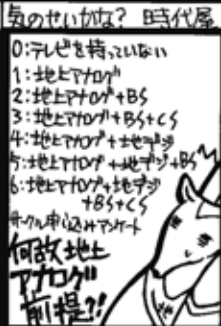 気のせいかな? 時代屋
0:テレビを持っていない
1:地上アナログ
2:地上アナログ+BS
3:地上アナログ+BS+CS
4:地上アナログ+地デジ
5:地上アナログ+地デジ+BS
6:地上アナログ+地デジ
+BS+CS
サークル申し込みアンケート
何故地上
アナログ
前提?!